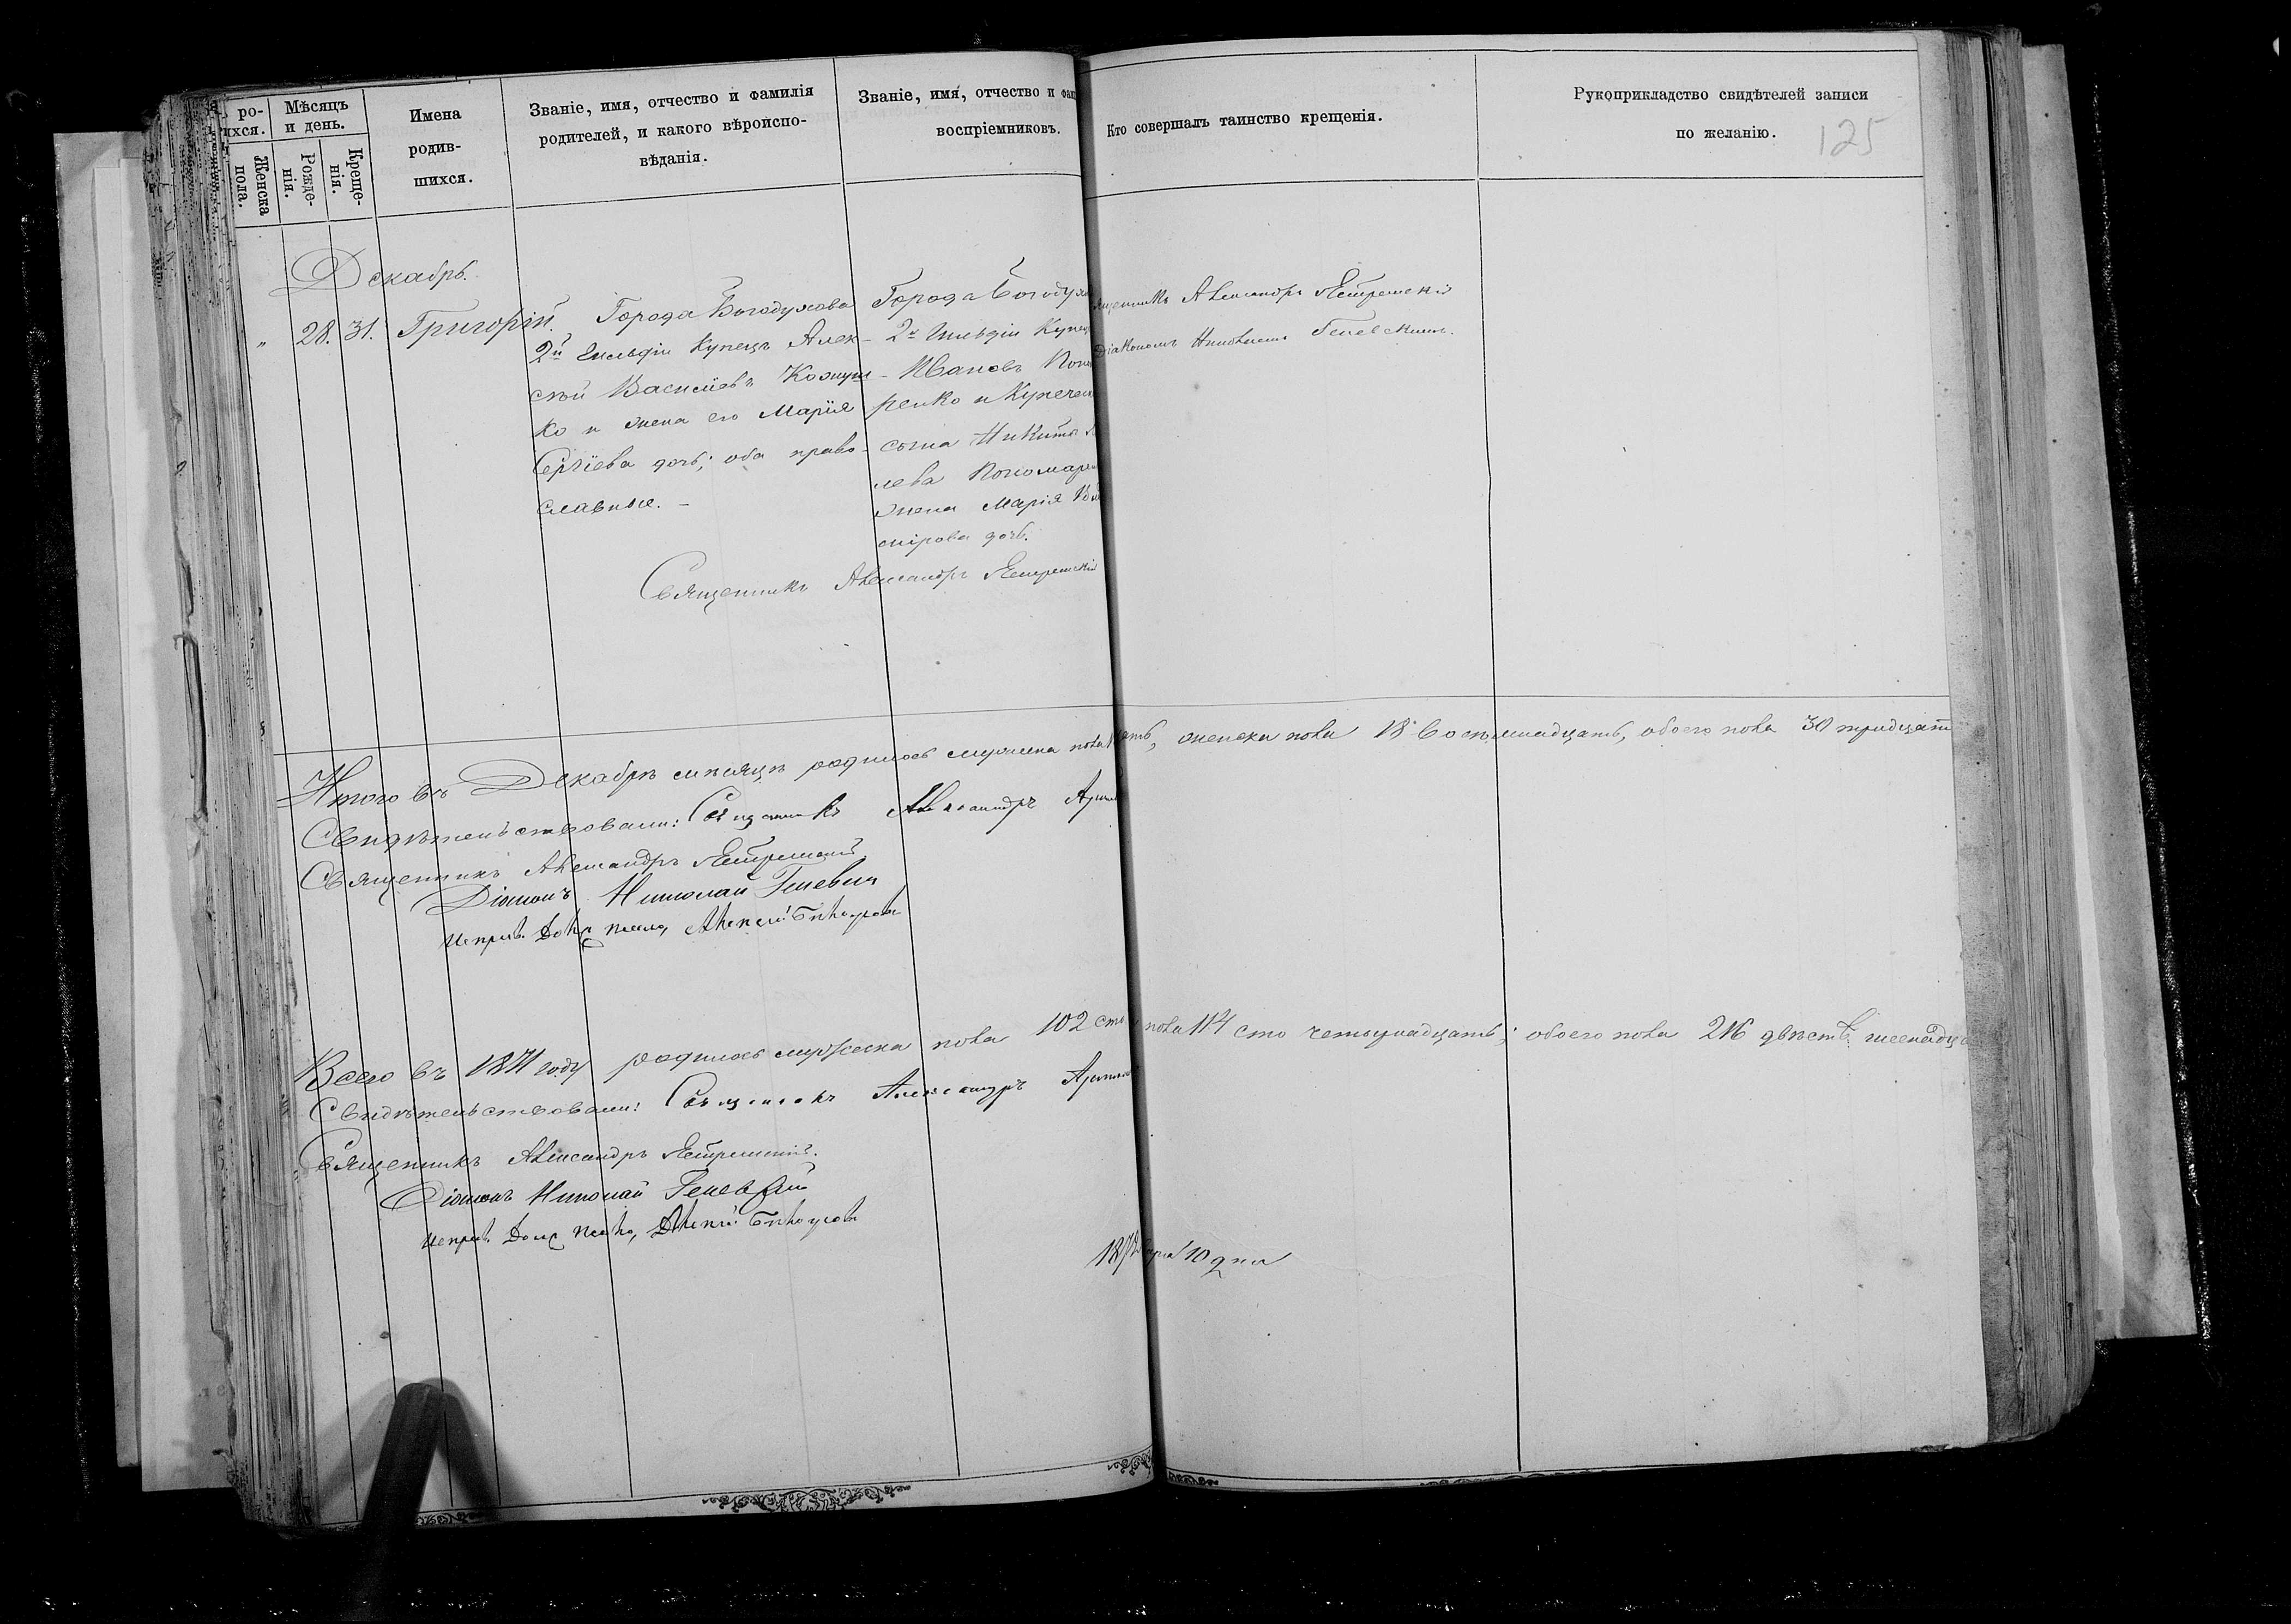 ро- Мѣсяцъ
ихся. и день.
Женска пола.
Рожде-
нія.
Креще-
нія.
Имена
родив-
шихся.
Званіе, имя, отчество и фамилія
родителей, и какого вѣроиспо-
вѣданія.
Званіе, имя, отчество и
воспріемниковъ.
Кто совершалъ таинство крещенія.
Рукоприкладство свидѣтелей записи
по желанію.
125
Декабрь.
" 28. 31. Григорій.
Города Богодухова
2й Гильдіи Купецъ Алек-
сѣй Васильевъ Кожуш-
ко и жена его Марія
Сергіева дочь; оба право-
славные. -
Города Богодух
2й Гильдіи Купец
Ивановъ Поно
ренко и Купечес
сына Никиты
лева Пономаре
жена Марія
мірова дочь.
Священникъ Александръ Ястремскій
Александръ Ястремскій
Діакономъ Николаемъ Геневскимъ.
Итого въ Декабрѣ мѣсяцѣ родилось мужеска пола
женска пола 18 восемнадцать, обоего пола 30 тридцать
Свидѣтельствовали: Священникъ Александръ
Священникъ Александръ Ястремскій
Діаконъ Николай
Алексѣй Бѣлоусовъ
Всего въ 1871 году родилось мужеска пола 102 сто
пола 114 сто четырнадцать; обоего пола 216 двѣсти шеснадца
Свидѣтельствовали: Священникъ Александръ
Священникъ Александръ Ястремскій.
Діаконъ Николай Геневскій
Алексѣй Бѣлоусовъ
187 10 дня